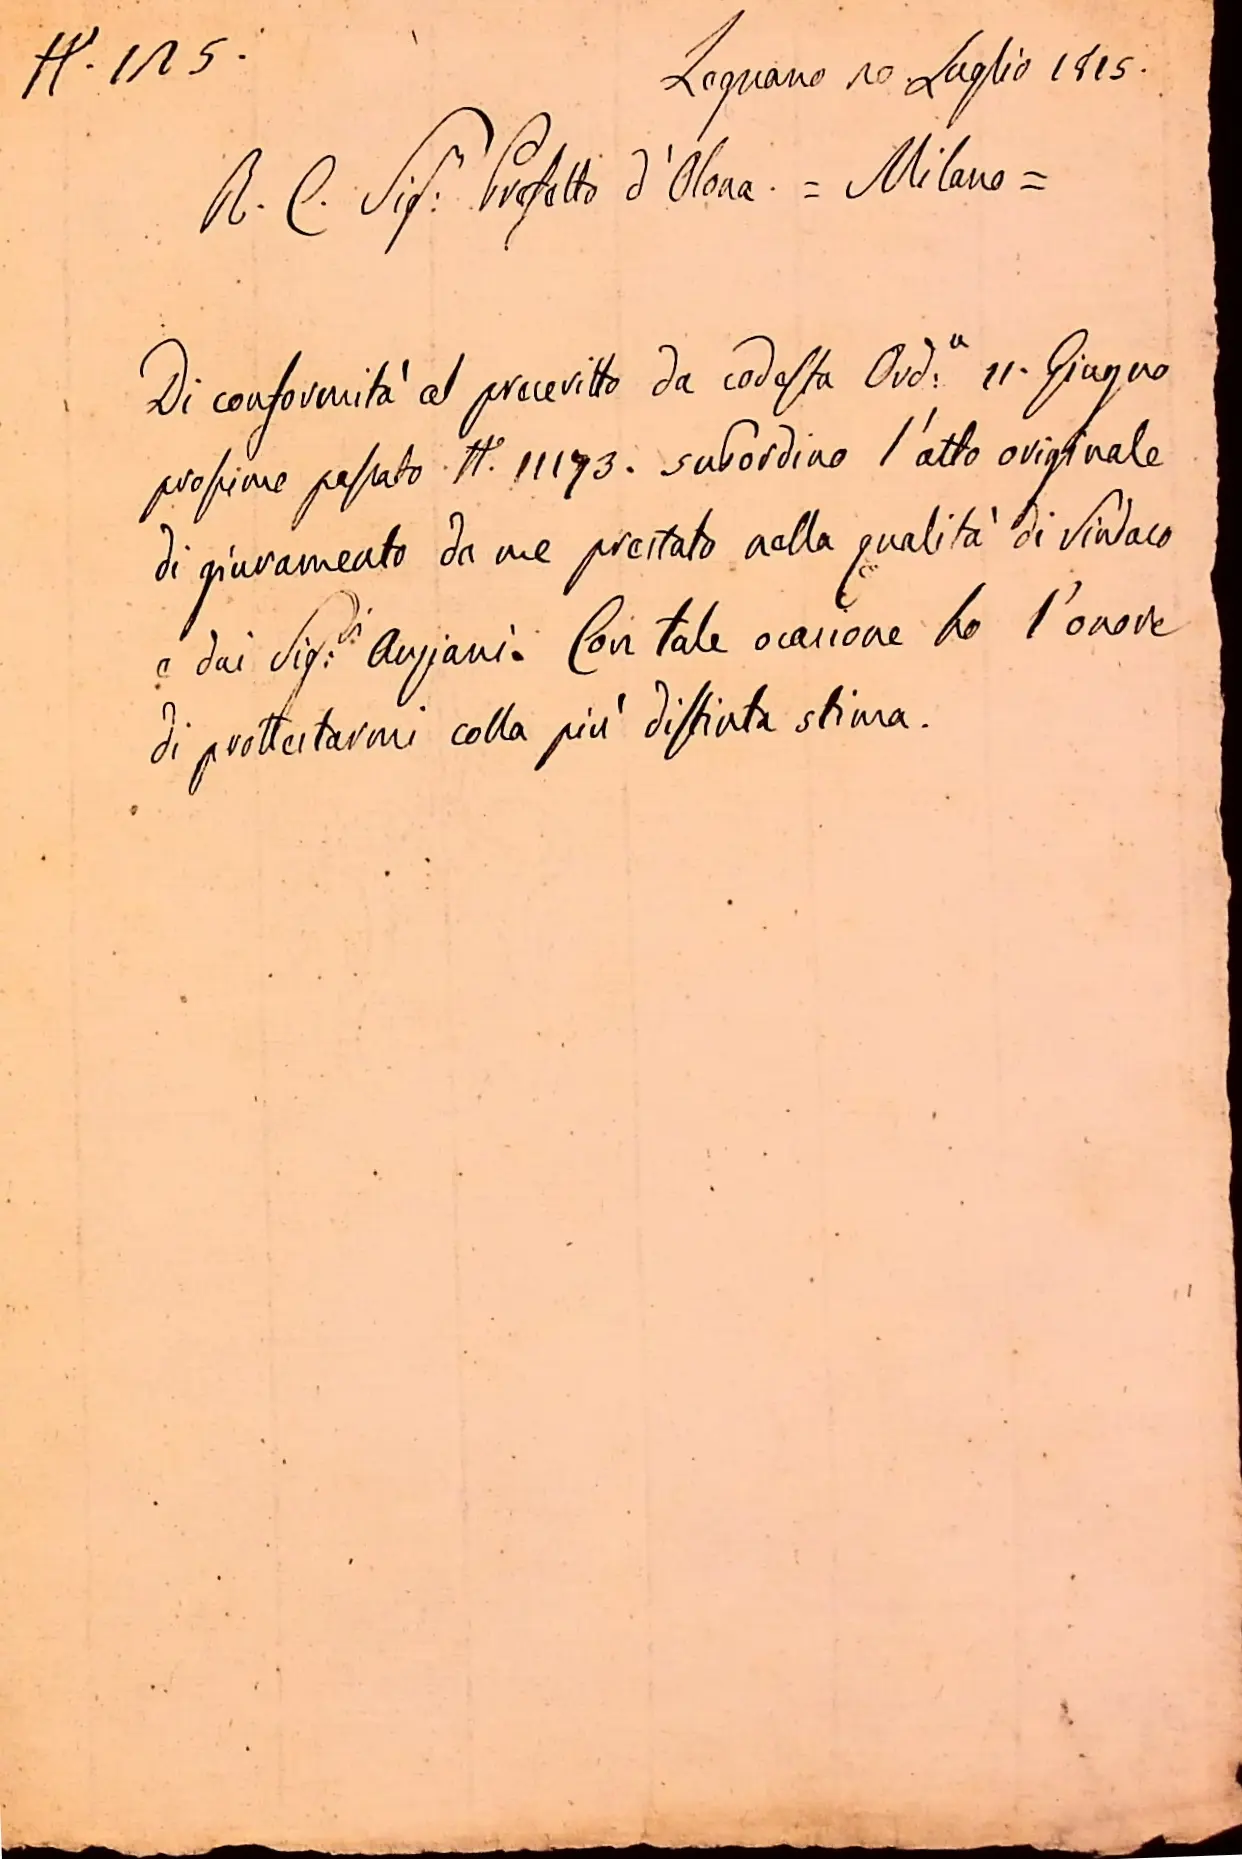 N.° 125.
Legnano 10 Luglio 1815.
R. C. Sig.r Prefetto d'Olona. = Milano =
Di conformità al prescritto da codesta Ord.a 11. Giugno
prossimo passato N.° 11173. subordino l'atto originale
di giuramento da me prestato nella qualità di Sindaco
e dai Sig.ri Anziani. Con tale ocasione ho l'onore
di prottestarmi colla più distinta stima.